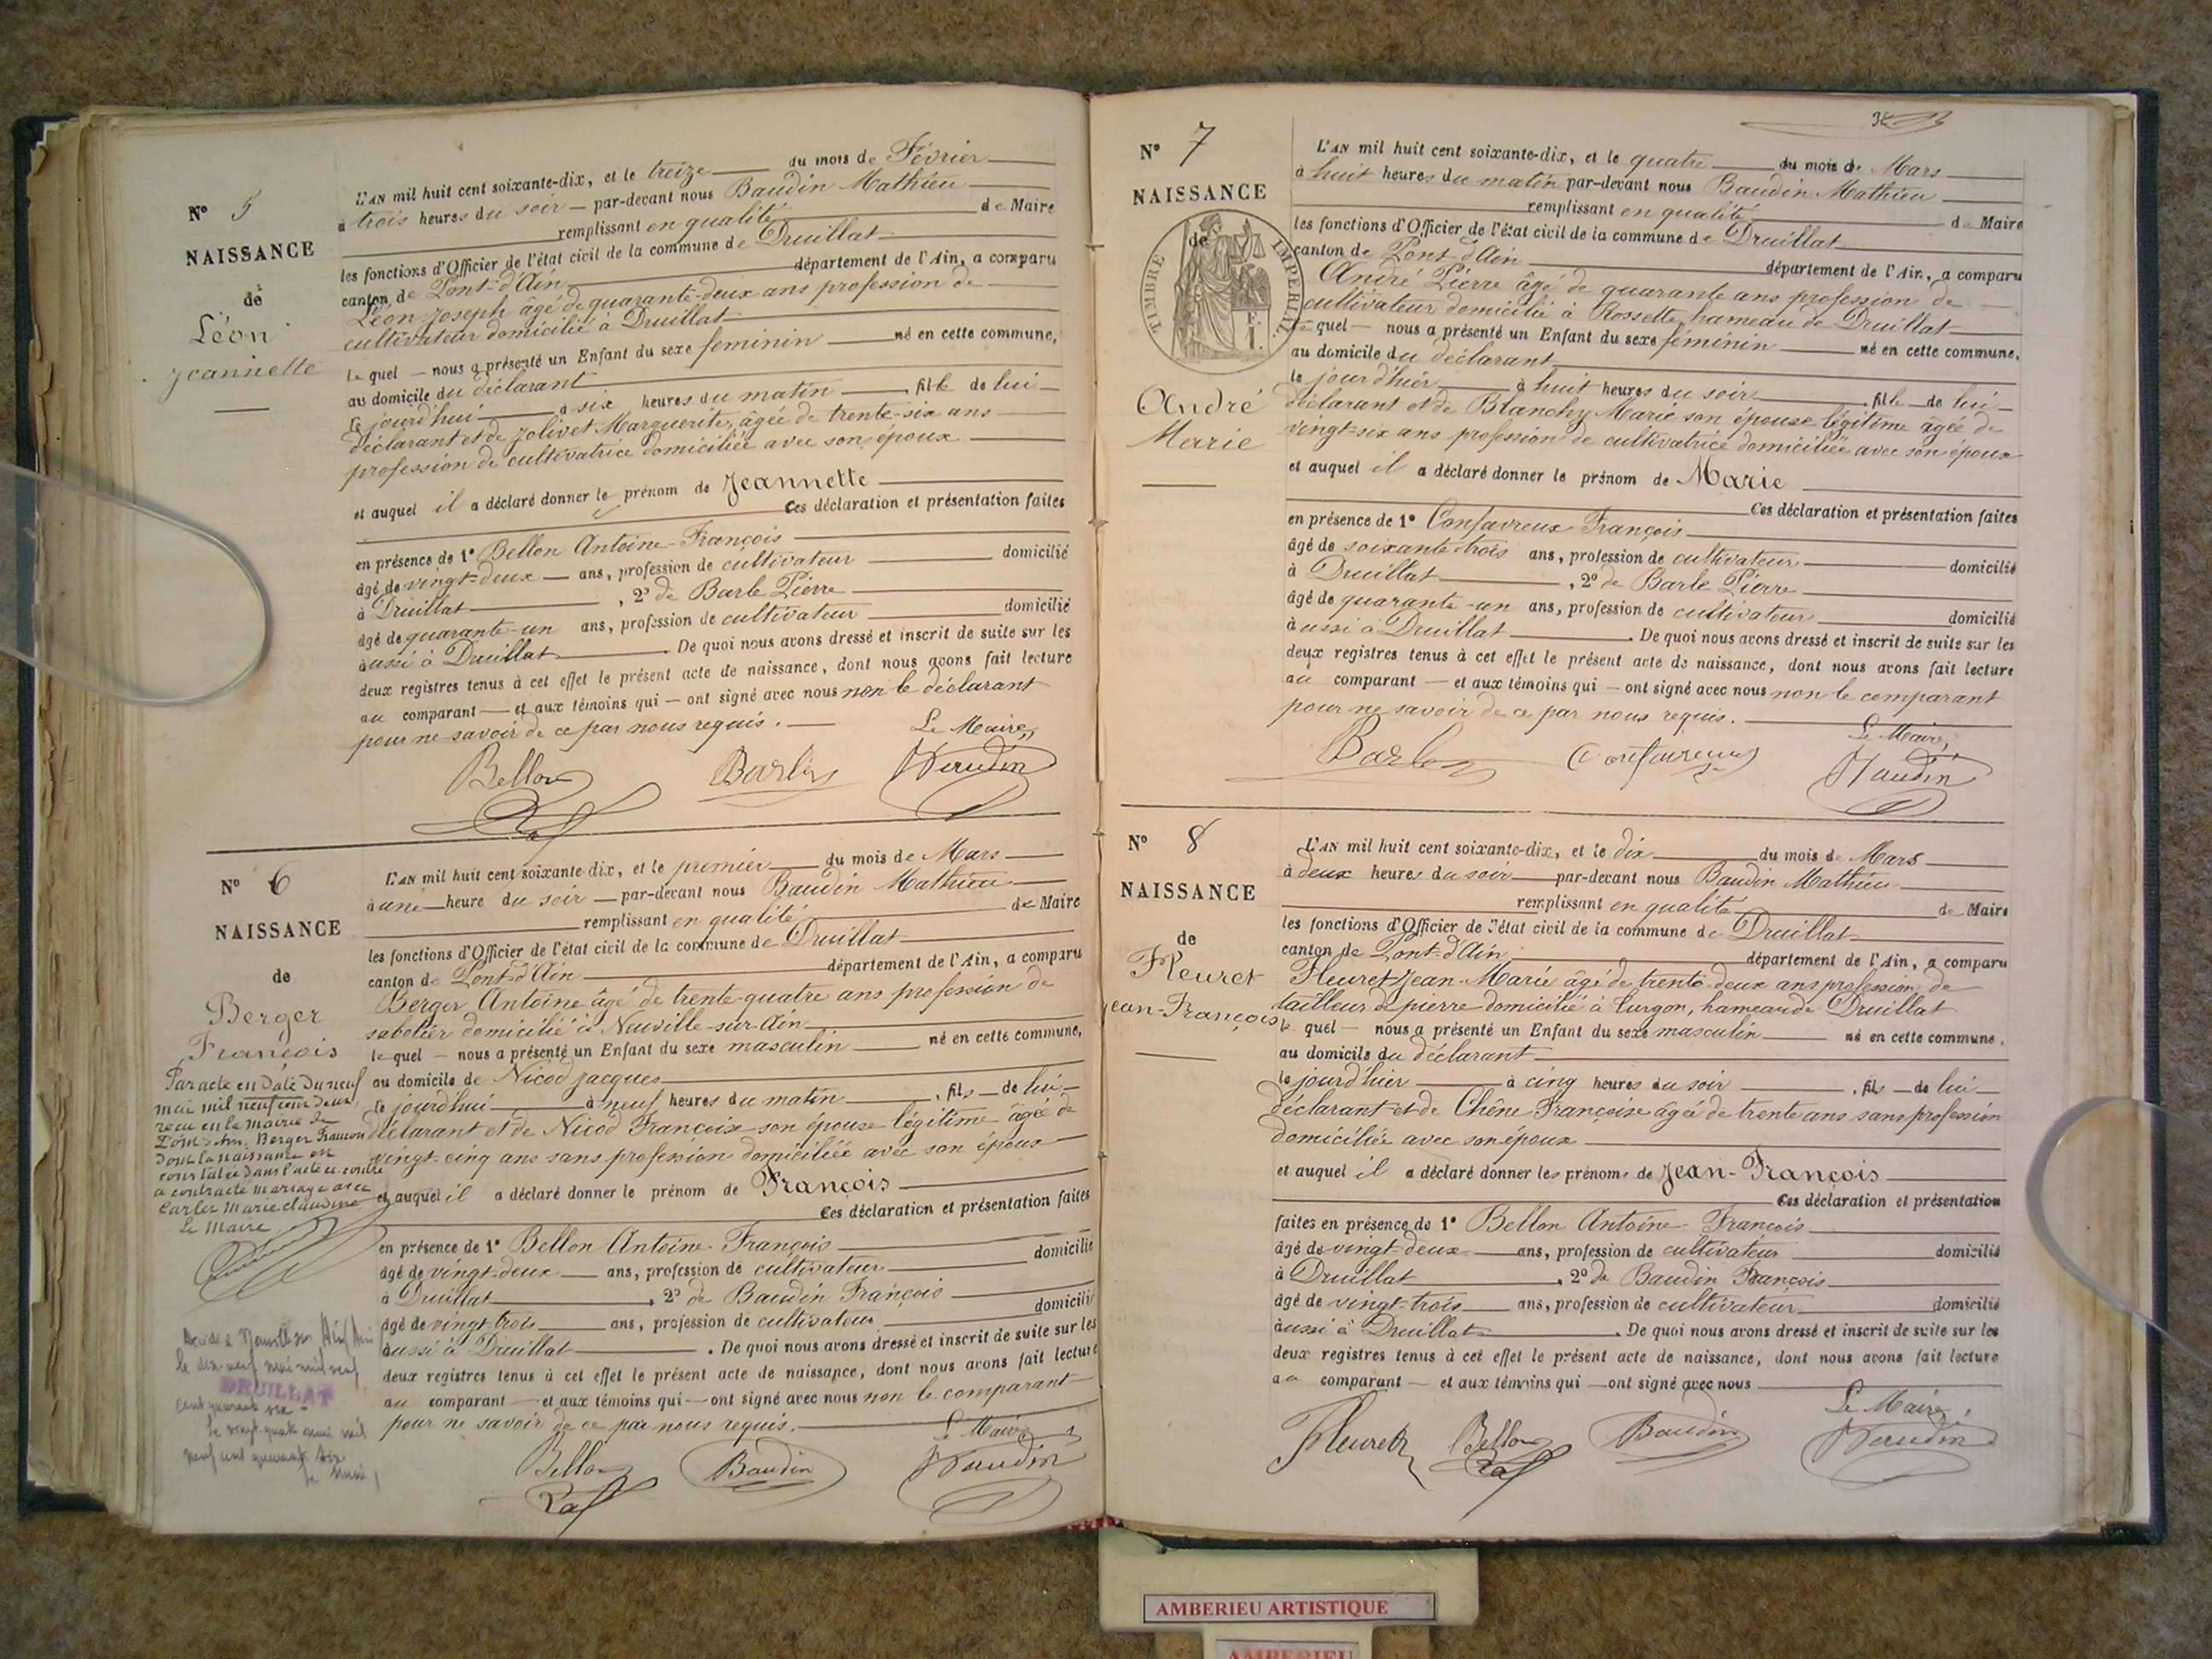 N° 5
NAISSANCE
de
Léon
Jeannette
L'AN mil huit cent soixante-dix, et le treize du mois de Février
à trois heures du soir par-devant nous Baudin Mathieu
remplissant en qualité de Maire
les fonctions d'Officier de l'état civil de la commune de Druillat
canton de Pont-d'Ain département de l'Ain, a comparu
Léon Joseph âgé de quarante-deux ans profession de
cultivateur domicilié à Druillat
le quel nous a présenté un Enfant du sexe féminin né en cette commune,
au domicile du déclarant
le jourd'hui à six heures du matin fille de lui
déclarant et de Jolivet Marguerite, âgée de trente-six ans
profession de cultivatrice domiciliée avec son époux
et auquel il a déclaré donner le prénom de Jeannette
Ces déclaration et présentation faites
en présence de 1° Bellon Antoine-François
âgé de vingt-deux ans, profession de cultivateur domicilié
à Druillat, 2° de Barbe Pierre
âgé de quarante-un ans, profession de cultivateur domicilié
aussi à Druillat. De quoi nous avons dressé et inscrit de suite sur les
deux registres tenus à cet effet le présent acte de naissance, dont nous avons fait lecture
au comparant et aux témoins qui ont signé avec nous non le déclarant
pour ne savoir de ce par nous requis.
Le Maire,
Bellon Barbe Baudin
N° 6
NAISSANCE
de
Berger
François
Par acte en date du neuf
mai mil neuf cent deux
reçu en la mairie de
Berger François
dont la naissance est
constatée dans l'acte ci-contre
a contracté mariage avec
Carler Marie Claudine
Le Maire
L'AN mil huit cent soixante-dix, et le premier du mois de Mars
à une heure du soir par-devant nous Baudin Mathieu
remplissant en qualité de Maire
les fonctions d'Officier de l'état civil de la commune de Druillat
canton de Pont-d'Ain département de l'Ain, a comparu
Berger Antoine âgé de trente-quatre ans profession de
sabotier domicilié à Neuville-sur-Ain
le quel nous a présenté un Enfant du sexe masculin né en cette commune,
au domicile de Nicod Jacques
le jourd'hui à neuf heures du matin, fils de lui
déclarant et de Nicod Françoise son épouse légitime âgée de
vingt-cinq ans sans profession domiciliée avec son époux
et auquel il a déclaré donner le prénom de François
Ces déclaration et présentation faites
en présence de 1° Bellon Antoine-François
âgé de vingt-deux ans, profession de cultivateur domicilié
à Druillat, 2° de Baudin François
âgé de vingt-trois ans, profession de cultivateur domicilié
aussi à Druillat. De quoi nous avons dressé et inscrit de suite sur les
deux registres tenus à cet effet le présent acte de naissance, dont nous avons fait lecture
au comparant et aux témoins qui ont signé avec nous non le comparant
pour ne savoir de ce par nous requis.
Le Maire
Bellon Baudin Baudin
Décédé à Neuville sur Ain
le dix-neuf mai mil neuf
DRUILLAT
cent quarante six
le vingt quatre mai mil
neuf cent quarante six
le Maire
N° 7
NAISSANCE
de
TIMBRE IMPERIAL
André
Marie
L'AN mil huit cent soixante-dix, et le quatre du mois de Mars
à huit heures du matin par-devant nous Baudin Mathieu
remplissant en qualité de Maire
les fonctions d'Officier de l'état civil de la commune de Druillat
canton de Pont-d'Ain département de l'Ain, a comparu
André Pierre âgé de quarante ans profession de
cultivateur domicilié à Rossette, hameau de Druillat
le quel nous a présenté un Enfant du sexe féminin né en cette commune,
au domicile du déclarant
le jour d'hier à huit heures du soir, fille de lui
déclarant et de Blanchy Marie son épouse légitime âgée de
vingt-six ans profession de cultivatrice domiciliée avec son époux
et auquel il a déclaré donner le prénom de Marie
Ces déclaration et présentation faites
en présence de 1° Confavreux François
âgé de soixante-trois ans, profession de cultivateur domicilié
à Druillat, 2° de Barbe Pierre
âgé de quarante-un ans, profession de cultivateur domicilié
aussi à Druillat. De quoi nous avons dressé et inscrit de suite sur les
deux registres tenus à cet effet le présent acte de naissance, dont nous avons fait lecture
au comparant et aux témoins qui ont signé avec nous non le comparant
pour ne savoir de ce par nous requis.
Le Maire,
Barbe Confavreux Baudin
N° 8
NAISSANCE
de
Fleuret
Jean-François
L'AN mil huit cent soixante-dix, et le dix du mois de Mars
à deux heures du soir par-devant nous Baudin Mathieu
remplissant en qualité de Maire
les fonctions d'Officier de l'état civil de la commune de Druillat
canton de Pont-d'Ain département de l'Ain, a comparu
Fleuret Jean-Marie âgé de trente-deux ans profession de
tailleur de pierre domicilié à Turgon, hameau de Druillat
le quel nous a présenté un Enfant du sexe masculin né en cette commune,
au domicile du déclarant
le jour d'hier à cinq heures du soir, fils de lui
déclarant et de Chêne Françoise âgée de trente ans sans profession
domiciliée avec son époux
et auquel il a déclaré donner les prénoms de Jean-François
Ces déclaration et présentation
faites en présence de 1° Bellon Antoine-François
âgé de vingt-deux ans, profession de cultivateur domicilié
à Druillat, 2° de Baudin François
âgé de vingt-trois ans, profession de cultivateur domicilié
aussi à Druillat. De quoi nous avons dressé et inscrit de suite sur les
deux registres tenus à cet effet le présent acte de naissance, dont nous avons fait lecture
au comparant et aux témoins qui ont signé avec nous
Le Maire,
Fleuret Bellon Baudin Baudin
AMBERIEU ARTISTIQUE
AMBERIEU